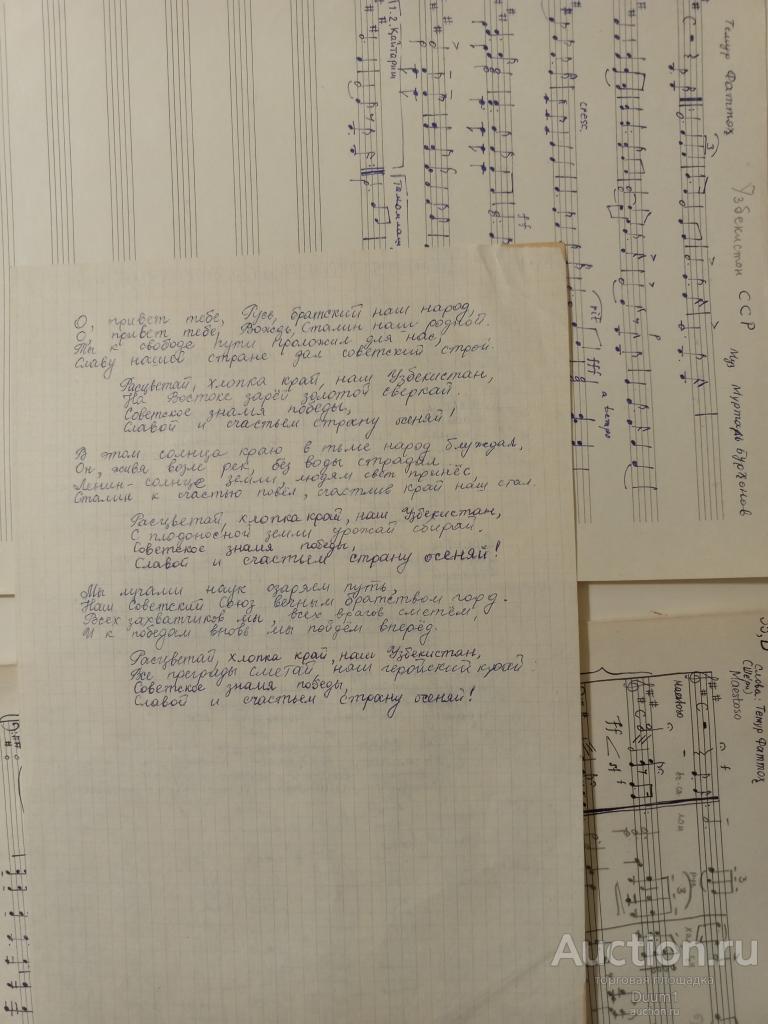 О, привет тебе, Русь, братский наш народ,
О, привет тебе, Вождь, Сталин наш родной.
Ты к свободе пути проложил для нас,
Славу нашей стране дал советский строй.
Расцветай, хлопка край, наш Узбекистан,
На Востоке зарёй золотой сверкай.
Советское знамя победы,
Славой и счастьем страну осеняй!
В этом солнца краю в тьме народ блуждал,
Он, живя возле рек, без воды страдал.
Ленин-солнце земли, людям свет принёс,
Сталин к счастью повёл, счастлив край наш стал.
Расцветай, хлопка край, наш Узбекистан,
С плодоносной земли урожай сбирай.
Советское знамя победы,
Славой и счастьем страну осеняй!
Мы лучами наук озаряем путь,
Наш Советский Союз вечным братством горд.
Всех захватчиков мы, всех врагов сметём,
И к победам вновь мы пойдём вперёд.
Расцветай, хлопка край, наш Узбекистан,
Все преграды сметай наш геройский край:
Советское знамя победы,
Славой и счастьем страну осеняй!
Темур Фаттох
Узбекистон ССР
Муз Муртарь Бурхонов
1.-2. Қайтариш
Тамомлаш
cresc.
ff
rit
fff
a tempo
p
3
Слова: Темур Фаттох
Maestoso
Maestoso
ff
f
3
3
Auction.ru
торговая площадка
Duum1
auction.ru